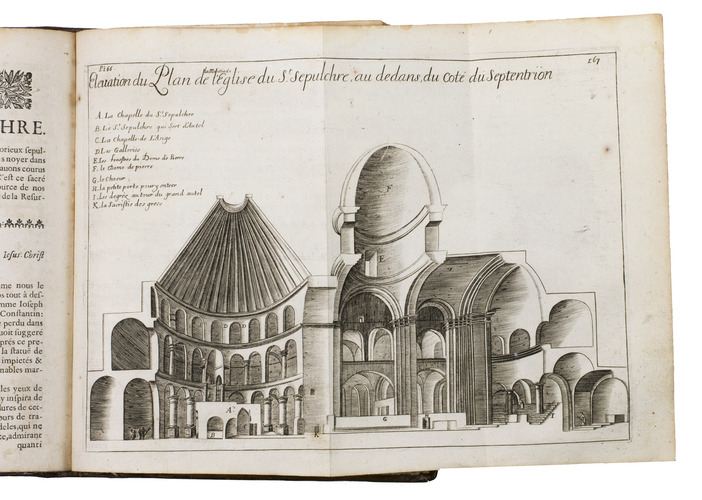 HRE.
orieux sepul-
s noyer dans
auons courus
C'est ce sacré
ource de nos
de la Resur-
Iesus-Christ
me nous le
os tout à des-
mme Ioseph
Constantin:
perdu dans
uoit suggeré
prés ce pre-
la statuë de
impietés &
nables mar-
les yeux de
y inspira de
dures de cet-
ours de tra-
deles, qui ne
te, admirant
quanti
167
Eleuation du Plan de l'église du St. Sepulchre, au dedans, du Coté du Septentrion
A. La Chapelle du St. Sepulchre
B. Le St. Sepulchre qui sert d'Autel
C. La Chapelle de l'Ange
D. Les Galleries
E. Les fenestres du Dome de Pierre
F. le Dome de pierre
G. le Choeur
H. la petite porte pour y entrer
I. Les degrez autour du grand autel
K. la Sacristie des grecs
F
E
I
D
D
H
A
B
G
K